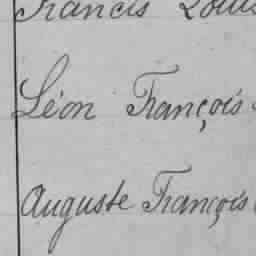 Francis Louis
Léon François
Auguste François